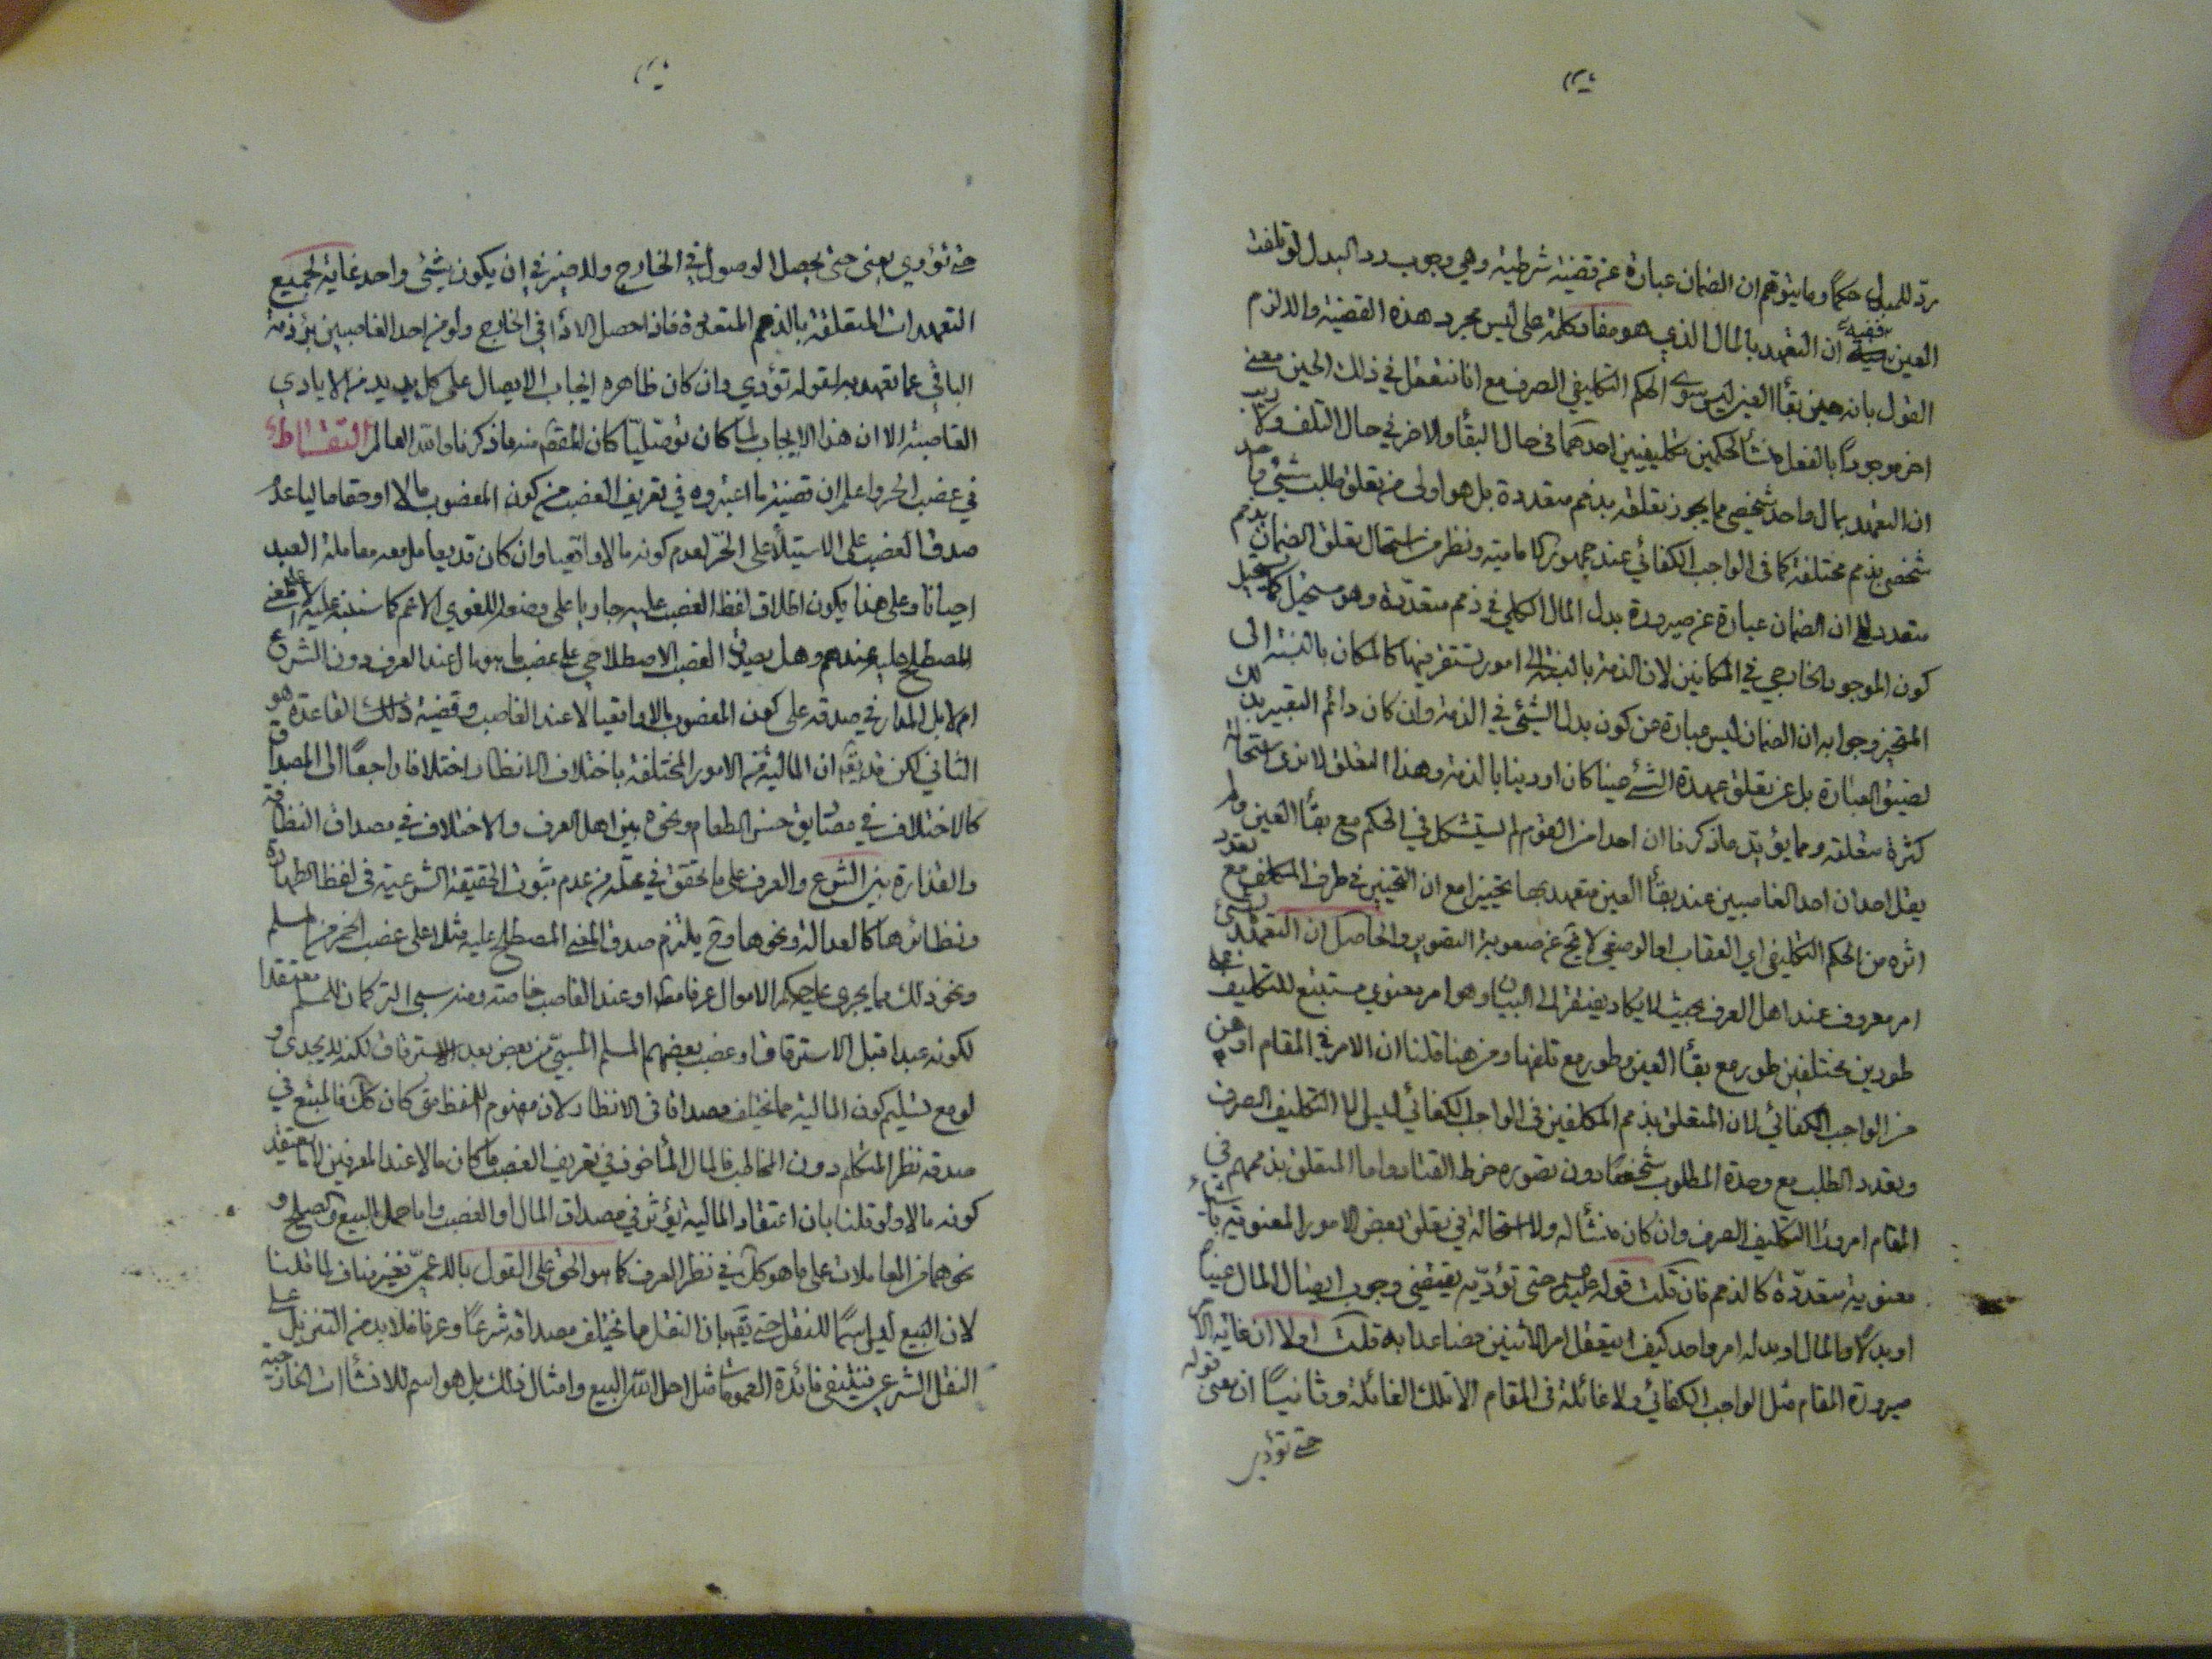 يرد للمبدل حكماً وما يتوهم ان الضمان عبارة عن قضية شرطية وهي وجوب رد البدل لو تلفت
العين ففيه ان التعهد بالمال الذي هو مفاد كلمة على ليس مجرد هذه القضية والا لزم
القول بانه حين بقأ العين ليس سوى الحكم التكليفي الصرف مع انا نتعقل في ذلك الحين معنى
اخر موجوداً بالفعل منشأ لحكمين تكليفيين احدهما في حال البقأ والاخر في حال التلف ولا ريب
ان التعهد بمال واحد شخصي مما يجوز تعلقه بذمم متعددة بل هو اولى من تعلق طلب شيئ واحد
شخصي بذمم مختلفة كما في الواجب الكفائي عند جمهور الامامية ونظر من استحال تعلق الضمان بذمم
متعددة الى ان الضمان عبارة عن صيرورة بدل المال الكلي في ذمم متعددة وهو مستحيل كما يستحيل
كون الموجود الخارجي في المكانين لان الذمة بالنسبة الى امور تستقر فيها كالمكان بالنسبة الى
المتحيز وجوابه ان الضمان ليس عبارة عن كون بدل الشيئ في الذمة وان كان دائم التعبير بذلك
لضيق العبارة بل عن تعلق عهدة الشئ عينا كان او دينا بالذمة وهذا التعلق لا نرى استحالة
كثرة متعلقه ومما يؤيد ما ذكرنا ان احدا من القوم لم يستشكل في الحكم مع بقأ العين ولم
يقل احد ان احد الغاصبين عند بقأ العين متعهد بها تخييرا مع ان التخيير في طرف المكلف مع تعدد
اثره من الحكم التكليفي اي العقاب او الوضعي لا يخ عن صعوبة التصوير والحاصل ان التعهد بشئ
امر معروف عند اهل العرف بحيث لا يكاد يفتقر الى البيان وهو امر معنوي مستتبع للتكليف على
طورين مختلفين طور مع بقأ العين وطور مع تلفها ومن هنا قلنا ان الامر في المقام اوهن
من الواجب الكفائي لان المتعلق بذمم المكلفين في الواجب الكفائي ليس الا التكليف الصرف
وتعدد الطلب مع وحدة المطلوب شخصا دون تصوره خرط القتاد واما المتعلق بذممهم في
المقام امر وراء التكليف الصرف وان كان منشأ له ولا استحالة في تعلق بعض الامور المعنوية باشيأ
معنوية متعددة كالذمم فان قلت قوله حتى تؤديه يقتضي وجوب ايصال المال عينا
او بدلاً والمال او بدله امر واحد كيف يتعقل امر الاثنين فصاعدا به قلت اولا ان غاية الامر
صيرورة المقام مثل الواجب الكفائي ولا غائلة في المقام الا تلك الغائلة وثانياً ان معنى قوله
حتى تؤدي
حتى تؤدي يعنى حتى يحصل الوصول في الخارج ولا ضير في ان يكون شيئ واحد غاية لجميع
التعهدات المتعلقة بالذمم المتعددة فاذا حصل الادأ في الخارج ولو من احد الغاصبين برئ ذمة
الباقي عما تعهد به لقوله تؤدي وان كان ظاهره ايجاب الايصال على كل يد يد من الايادي
الغاصبة الا ان هذا الايجاب لما كان توصليّا كان المفهم منه ما ذكرنا والله العالم التقاط
في غصب الحر واعلم ان قضية ما اعتبروه في تعريف الغصب من كون المغصوب مالا او حقا ماليا عدم
صدق الغصب على الاستيلأ على الحر لعدم كونه مالا واقعيا وان كان قد يعامل معه معاملة العبد
احيانا وعلى هذا يكون اطلاق لفظ الغصب عليه جاريا على وضعه اللغوي الاعم كما سننبه عليه لا على المعنى
المصطلح عليه عندهم وهل يصدق الغصب الاصطلاحي على غصب ما هو مال عند العرف دون الشرع
ام لا بل المدار في صدقه على كون المغصوب مالا واقعيا لا عند الغاصب وقضية ذلك القاعدة هو
الثاني لكن قد يقال ان المالية من الامور المختلفة باختلاف الانظار اختلافا راجعاً الى المصداق
كالاختلاف في مصاديق حسن الطعام ونحوه بين اهل العرف والاختلاف في مصداق النظافة
والقذارة بين الشرع والعرف على ما تحقق في محله من عدم ثبوت الحقيقة الشرعية في لفظ الطهارة
ونظائرها كالعدالة ونحوها وح يلتزم صدق المعنى المصطلح عليه مثلا على غصب الخمر من المسلم
ونحو ذلك مما يجرى عليه حكم الاموال عرفا او عند الغاصب خاصة ومنه سبي التركمان للمسلم معتقدا
لكونه عبدا قبل الاسترقاق او غصب بعضهم المسلم المسبيّ من بعض بعد الاسترقاق لكنه لا يجدي و
لو مع تسليم كون المالية مما يختلف مصداقا في الانظار لان مفهوم اللفظ متى كان كك فالمتبع في
صدقه نظر المتكلم دون المخاطب فالمال المأخوذ في تعريف الغصب ما كان مالا عند المعرفين لا ما يعتقد
كونه مالا ولو قلنا بان اعتقاد المالية يؤثر في مصداق المال او الغصب واما حمل البيع والصلح و
نحوهما من المعاملات على ما هو كك في نظر العرف كما هو الحق على القول بالاعم فغير مناف لما قلنا
لان البيع ليس اسمًا للنقل حتى يقال بان النقل مما يختلف مصداقه شرعاً وعرفا فلا بد من التنزيل على
النقل الشرعي فينتفي فائدة العمومات مثل احل الله البيع وامثال ذلك بل هو اسم للانشأات الخارجية